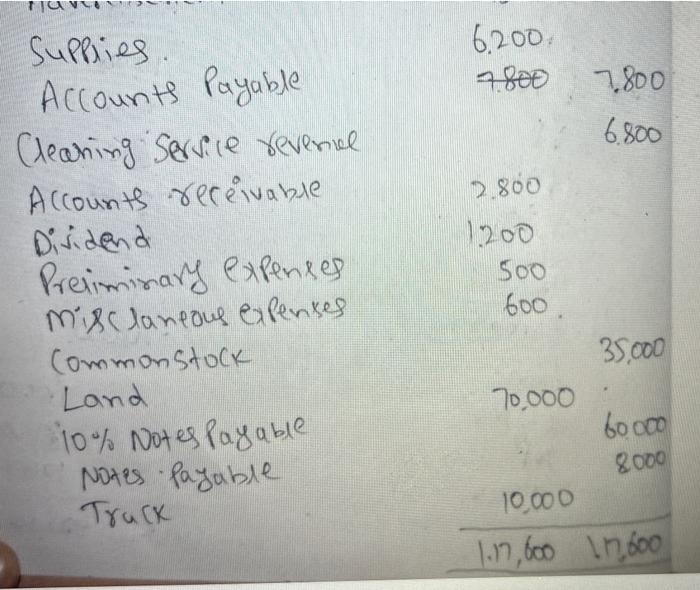 Supplies. 6,200
Accounts Payable 7.800 7.800
Cleaning Service revenue 6.800
Accounts receivable 2.800
Dividend 1.200
Preliminary expenses 500
Misclaneous expenses 600
Common stock 35,000
Land 70,000
10% Notes Payable 60,000
Notes Payable 8000
Truck 10,000
1.17,600 1.17,600